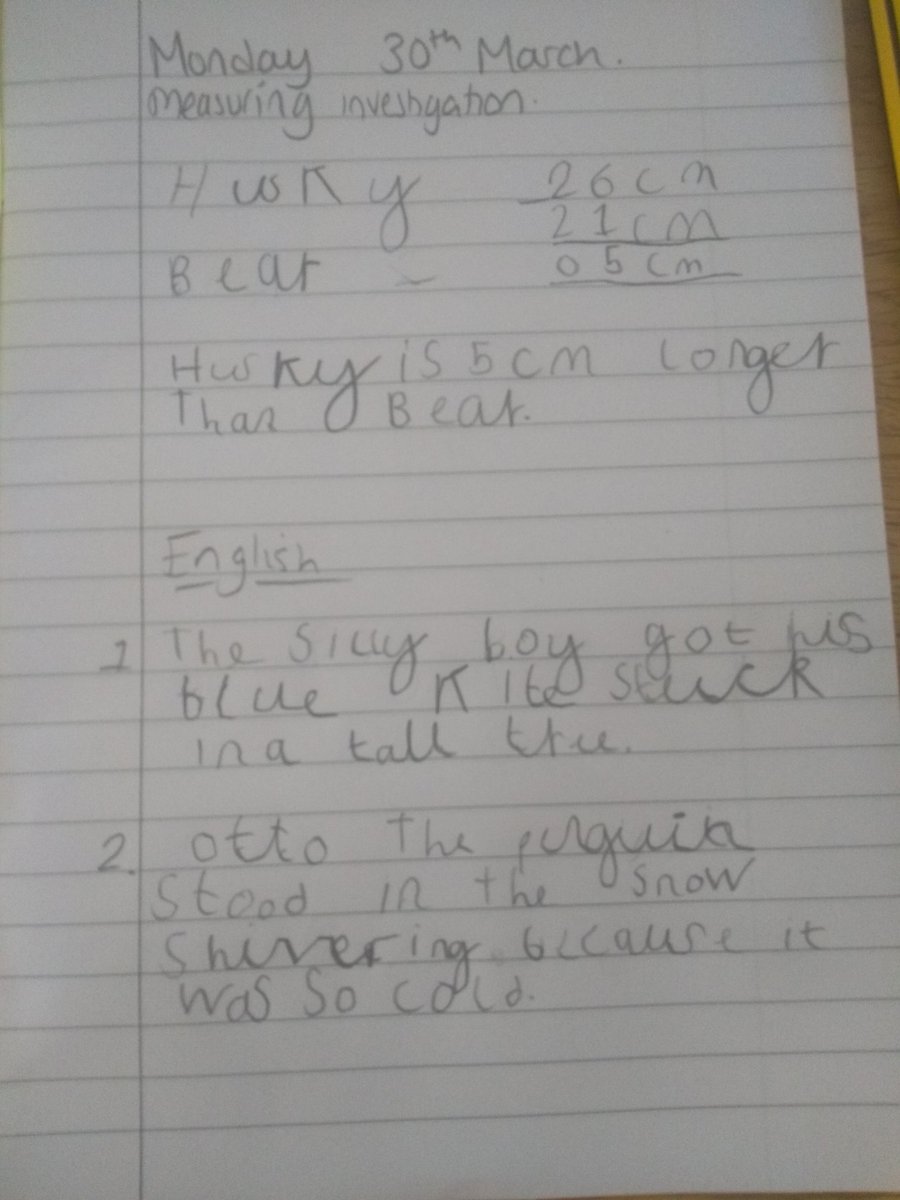 Monday 30th March.
measuring investigation.
Husky 26cm
21cm
Bear - 05cm
Husky is 5cm longer
Than Bear.
English
1 The silly boy got his
blue Kite stuck
in a tall tree.
2. otto The penguin
Stood in the snow
Shivering because it
was so cold.